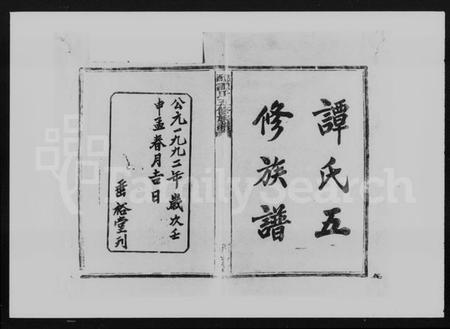 譚氏五
修族譜
公元一九九二年歲次壬
申孟春月吉日
垂裕堂刋
FamilySearch